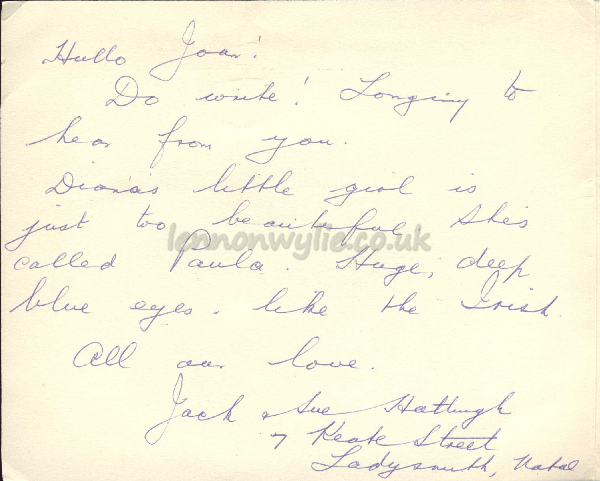 Hullo Joan!
Do write! Longing to
hear from you.
Diana's little girl is
just too beautiful, she's
lennonwylie.co.uk
called Paula. Huge, deep
blue eyes - like the Irish.
All our love.
Jack & Sue Hattingh
7 Keate Street
Ladysmith, Natal